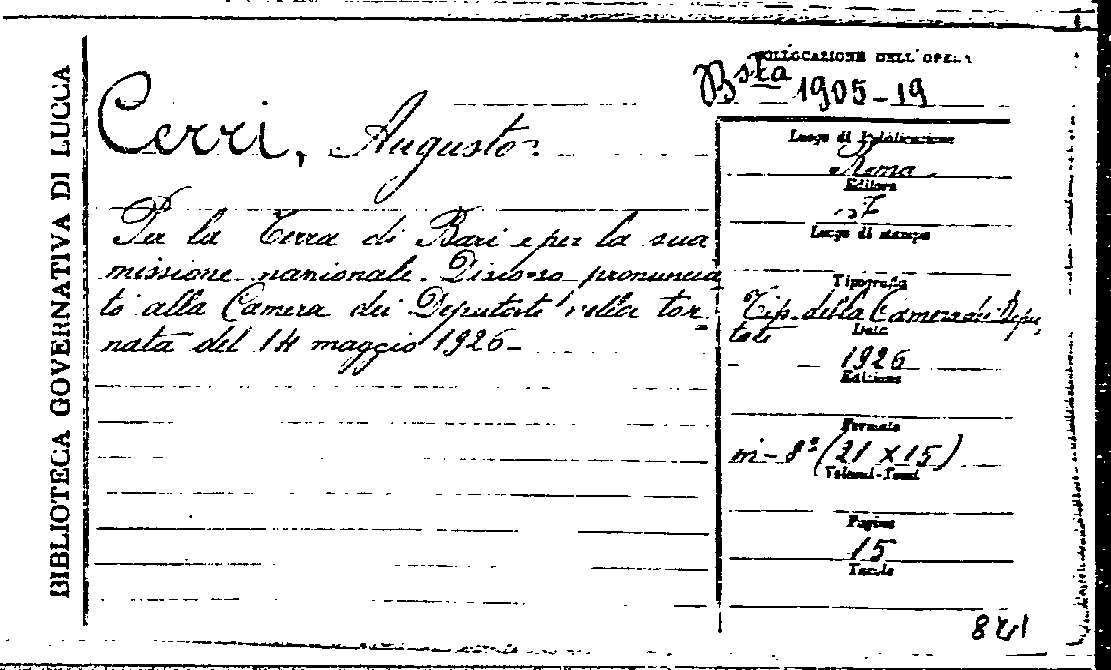 BIBLIOTECA GOVERNATIVA DI LUCCA
COLLOCAZIONE DELL'OPERA
Bsta 1905-19
Cerri, Augusto.
Per la Terra di Bari e per la sua
missione nazionale. Discorso pronuncia
to alla Camera dei Deputati nella tor
nata del 14 maggio 1926-
Luogo di Pubblicazione
Roma
Editore
Luogo di stampa
Tipografia
Tip. della Camera dei Depu,
tati
Data
1926
Edizione
Formato
in-8º (21 x 15)
Volumi-Tomi
Pagine
15
Tavole